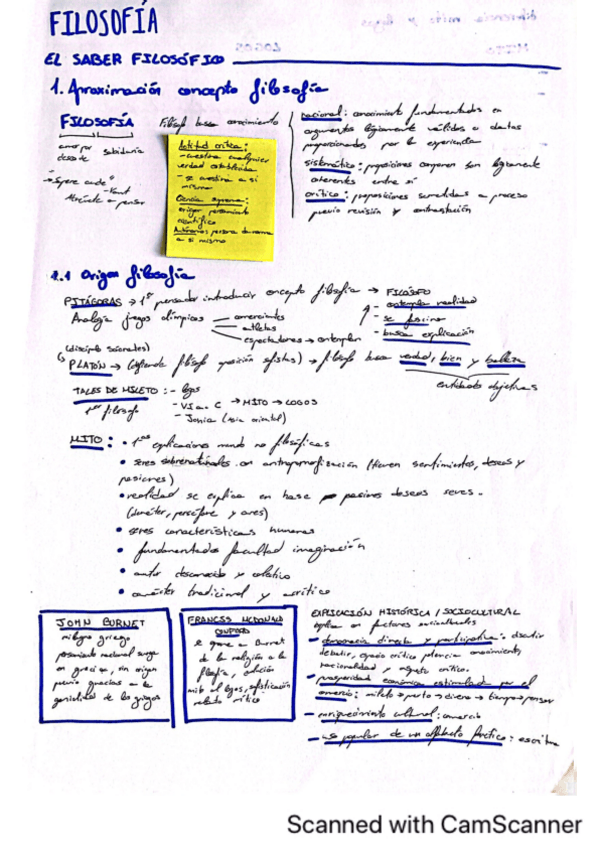 FILOSOFÍA
EL SABER FILOSÓFICO
1. Aproximación concepto filosofía
FILOSOFÍA
amor por sabiduría
deseo de
"Sapere aude"
- Kant
Atrévete a pensar
Filósofo busca conocimiento
Actitud crítica:
- cuestiona cualquier
verdad establecida
- se cuestiona a si
mismo
Ciencia suprema:
origen pensamiento
científico
Autónomo: persona da norma
a si mismo
racional: conocimiento fundamentados en
argumentos lógicamente válidos o datos
proporcionados por la experiencia
sistemático: proposiciones componen son lógicamente
coherentes entre sí
crítico: proposiciones sometidas a proceso
previo revisión y contrastación
1.1 Origen filosofía
PITÁGORAS → 1er pensador introducir concepto filosofía → FILÓSOFO
Analogía juegos olímpicos
comerciantes
atletas
espectadores → contemplan
- contempla realidad
- se fascina
- busca explicación
(discípulo Sócrates)
PLATÓN → (defiende filósofo oposición sofistas) → filósofo busca verdad, bien y belleza
entidades objetivas
TALES DE MILETO: - logos
1er filósofo
- VI a. C → MITO → LOGOS
- Jonia (Asia oriental)
MITO: • 1as explicaciones mundo no filosóficas
• seres sobrenaturales con antropomorfización (tienen sentimientos, deseos y
pasiones)
• realidad se explica en base pasiones deseos seres.
(Deméter, Perséfone y Ares)
• seres características humanas
• fundamentados facultad imaginación
• autor desconocido y colectivo
• carácter tradicional y acrítico
JOHN BURNET
milagro griego
pensamiento racional surge
en grecia, sin origen
previo gracias a la
genialidad de los griegos
FRANCIS MCDONALD
CONFORD
se opone a Burnet
de la religión a la
filosofía, evolución
mito al logos, sofisticación
relato mítico
EXPLICACIÓN HISTÓRICA / SOCIOCULTURAL
explica en factores
- democracia directa y participativa: discutir
debatir, espacio crítico potencia conocimiento,
racionalidad y aspecto crítico.
- prosperidad económica estimulada por el
comercio: mileto → puerto → dinero → tiempo → pensar
- enriquecimiento cultural: comercio
- uso popular de un alfabeto fonético: escritura
Scanned with CamScanner